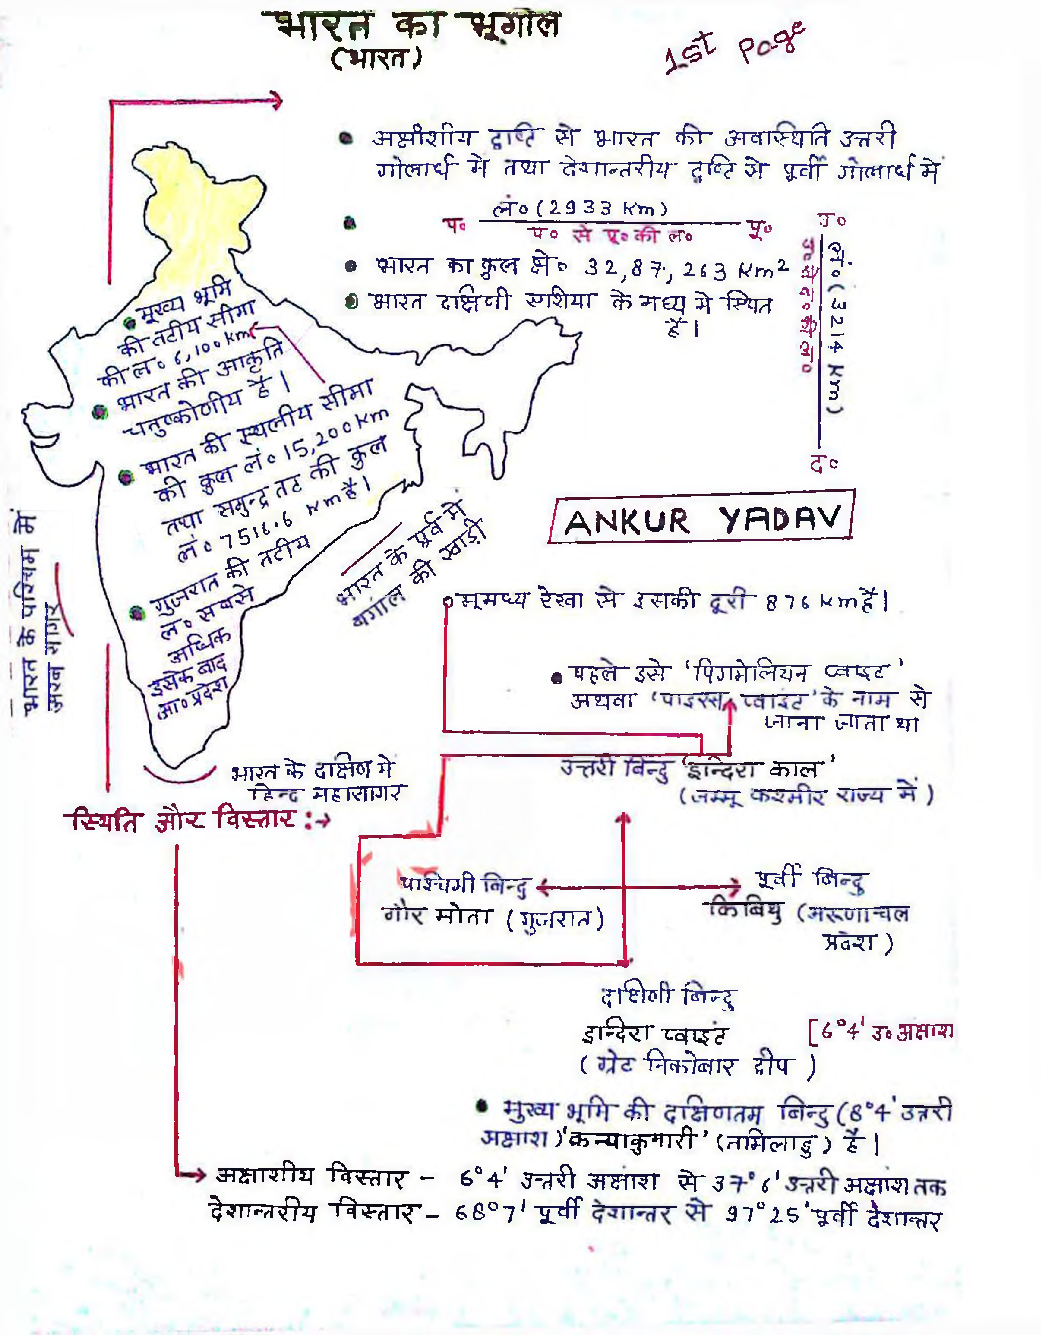 भारत का भूगोल
(भारत)
1st Page
अक्षांशीय दृष्टि से भारत की अवस्थिति उत्तरी
गोलार्ध में तथा देशान्तरीय दृष्टि से पूर्वी गोलार्ध में
लं० (2933 Km)
प० पू०
प० से पू० की ल०
भारत का कुल क्षे० 32,87,263 Km²
भारत दक्षिणी एशिया के मध्य मे स्थित
है।
उ०
लं० (3214 Km)
उ० से द० की ल०
द०
मुख्य भूमि
की तटीय सीमा
की ल० 6,100 km
भारत की आकृति
चतुष्कोणीय है।
भारत की स्थलीय सीमा
की कुल लं० 15,200 Km
तथा समुन्द्र तट की कुल
लं० 7516.6 Km है।
गुजरात की तटीय
ल० सबसे
अधिक
उसके बाद
आ० प्रदेश
भारत के पश्चिम में
अरब सागर
भारत के पूर्व में
बंगाल की खाड़ी
भारत के दक्षिण में
हिन्द महासागर
ANKUR YADAV
भूमध्य रेखा से इसकी दूरी 876 Km है।
पहले इसे 'पिगमेलियन प्वाइंट'
अथवा 'पाइरस प्वाइंट' के नाम से
जाना जाता था
उत्तरी बिन्दु 'इन्दिरा काल'
(जम्मू कश्मीर राज्य में)
स्थिति और विस्तार :→
पश्चिमी बिन्दु
गौर मोता (गुजरात)
पूर्वी बिन्दु
किबिथु (अरूणाचल
प्रदेश)
दक्षिणी बिन्दु
इन्दिरा प्वाइंट [6°4' उ० अक्षांश
(ग्रेट निकोबार दीप)
मुख्य भूमि की दक्षिणतम बिन्दु (8°4' उत्तरी
अक्षांश) 'कन्याकुमारी' (तामिलाडु) है।
अक्षाशीय विस्तार – 6°4' उत्तरी अक्षांश से 37°6' उत्तरी अक्षांश तक
देशान्तरीय विस्तार – 68°7' पूर्वी देशान्तर से 97°25' पूर्वी देशान्तर